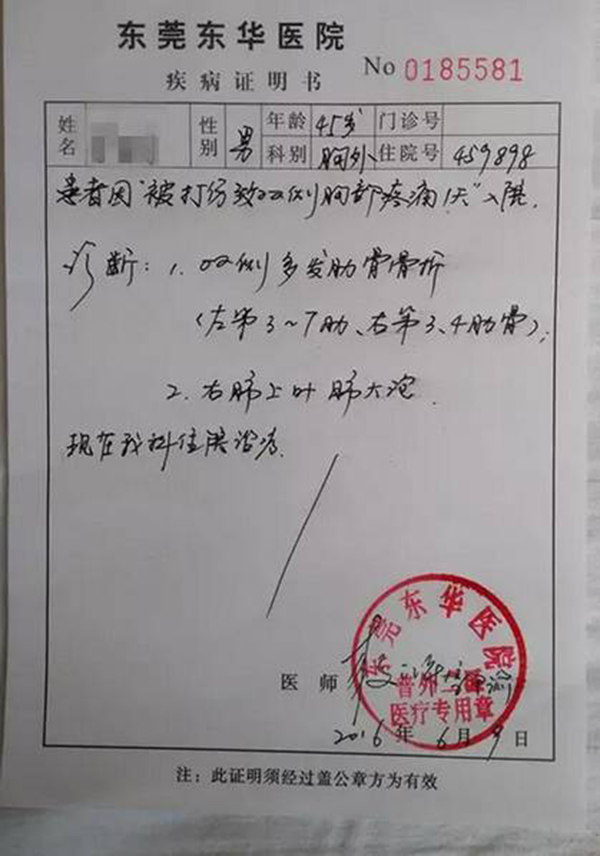 东莞东华医院
疾病证明书
No 0185581
姓名 性别 男 年龄 45岁 门诊号
科别 胸外 住院号 459898
患者因"被打伤致双侧胸部疼痛1天"入院.
诊断：1. 双侧多发肋骨骨折
(左第3~7肋、右第3、4肋骨);
2. 右肺上叶肺大泡.
现在我科住院治疗.
东莞东华医院
医师
医疗专用章
2016年6月9日
注：此证明须经过盖公章方为有效